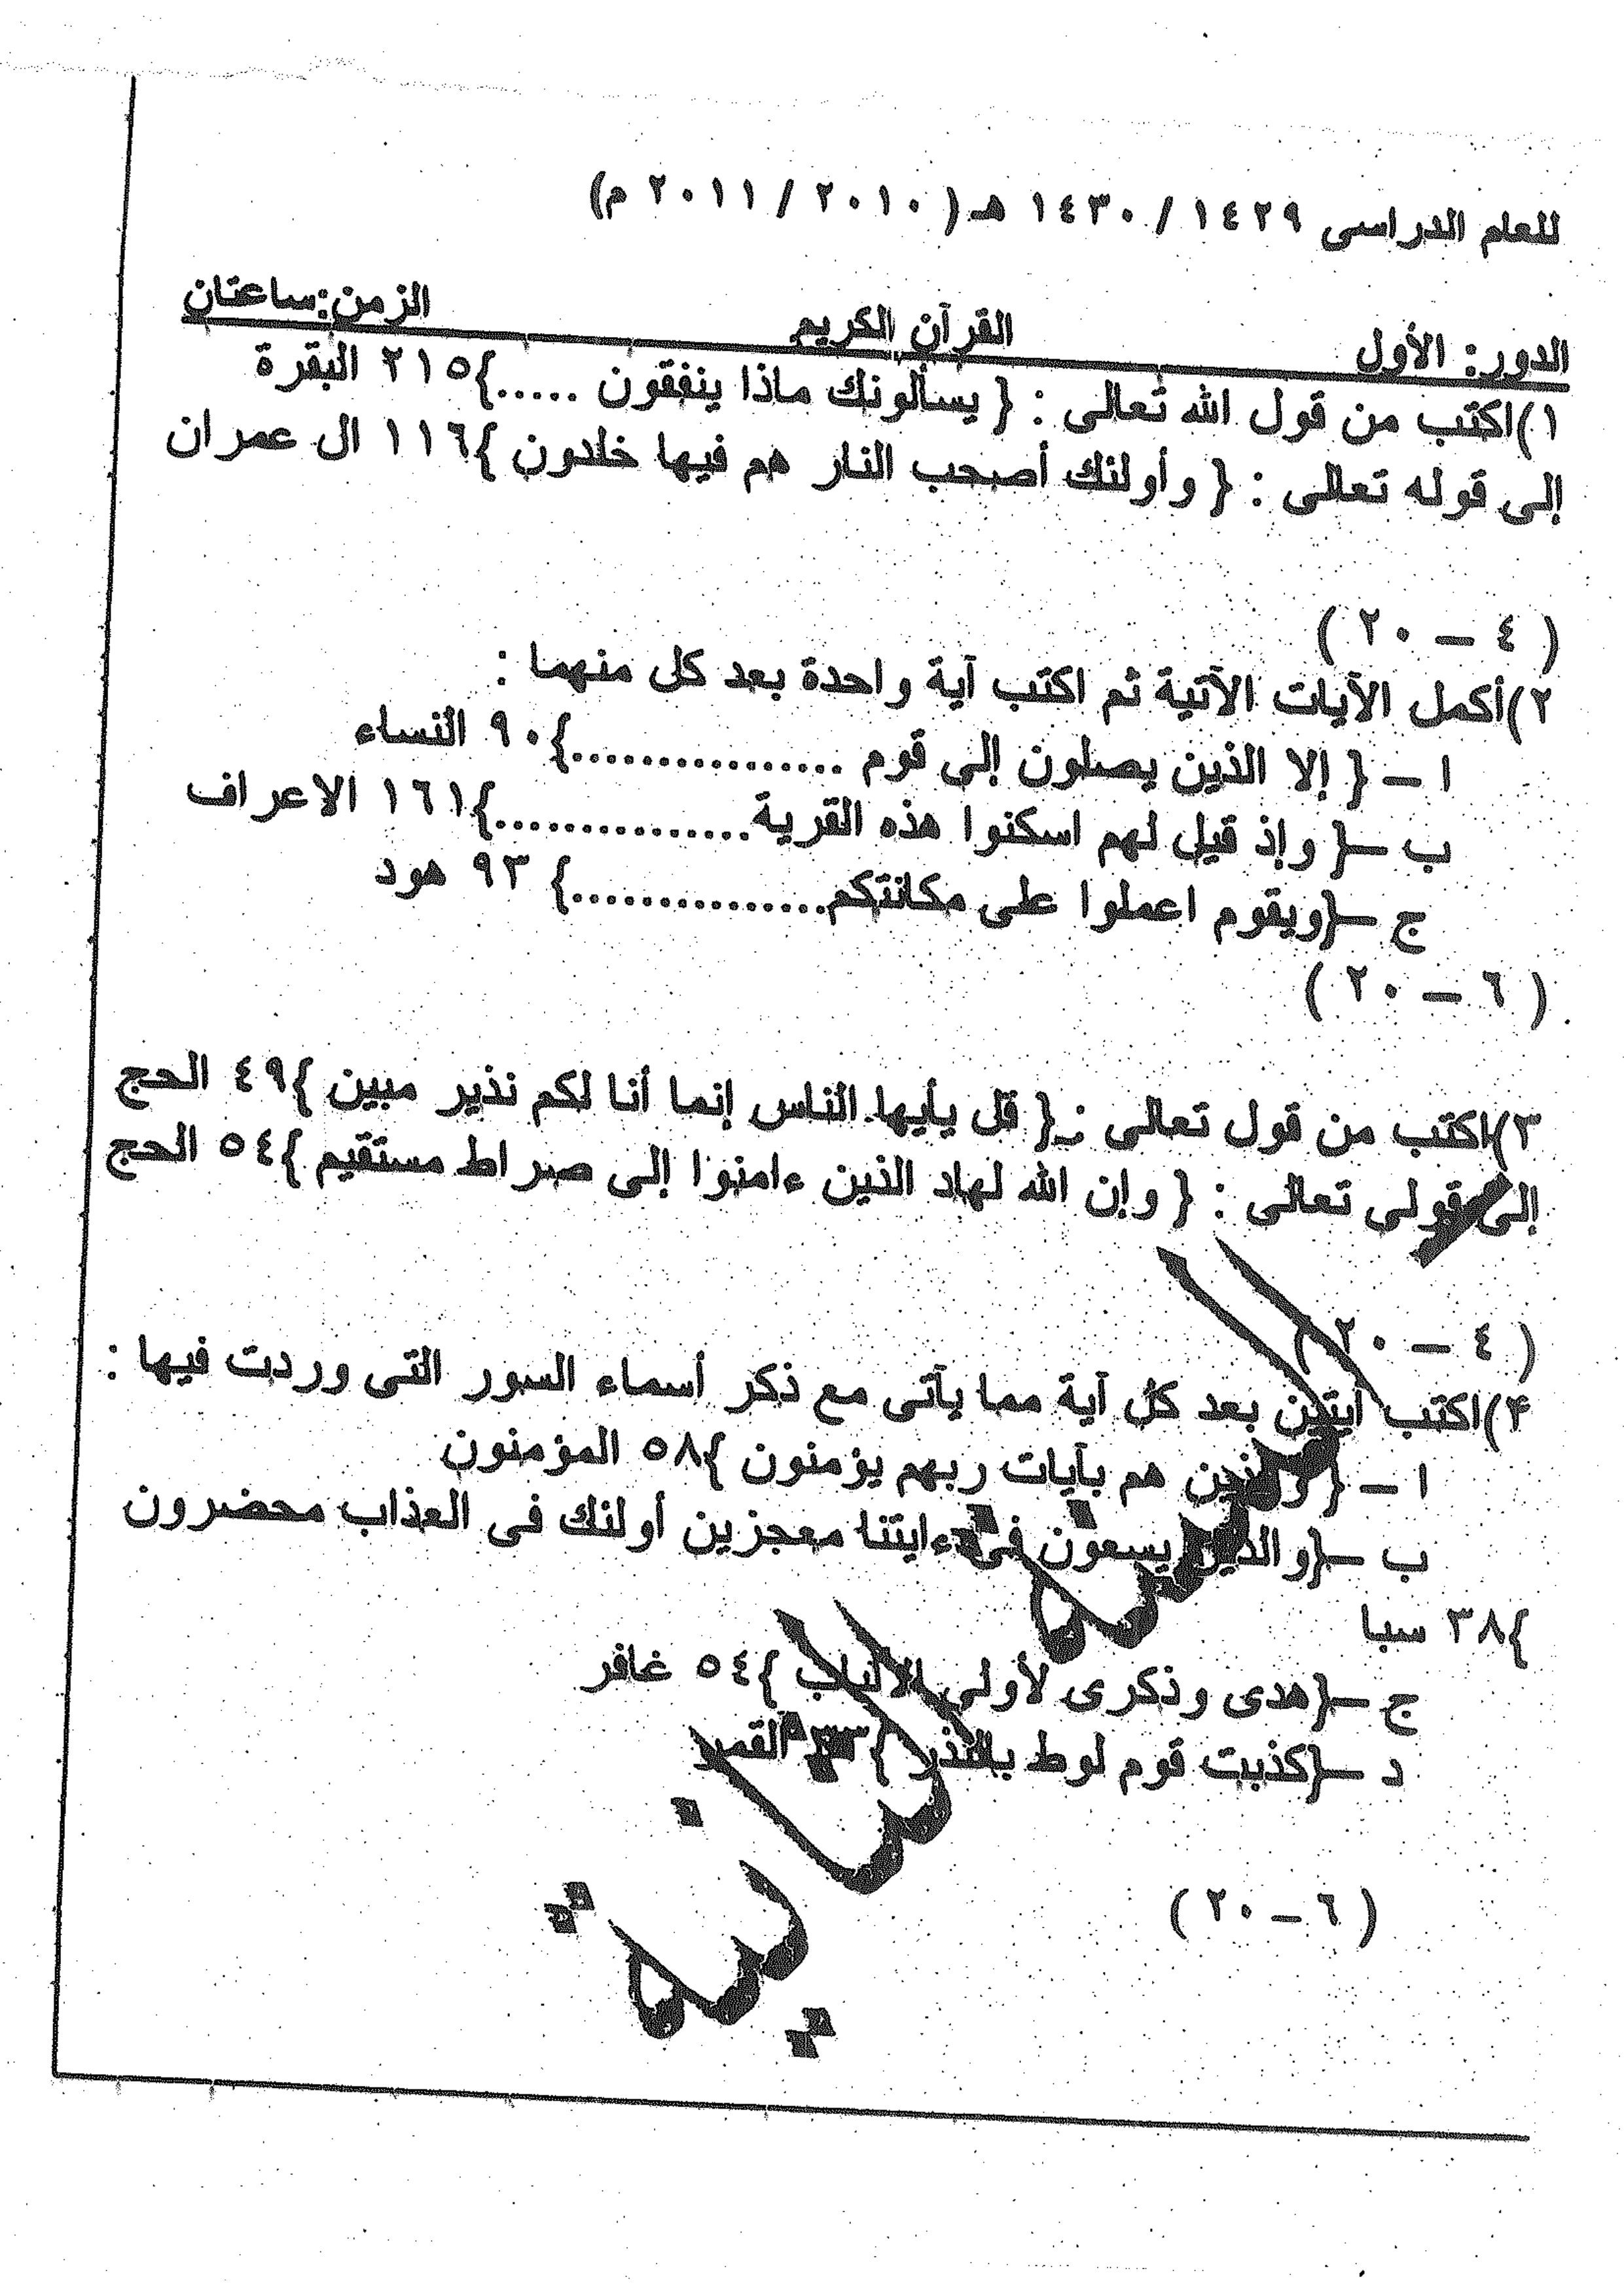 للعام الدراسى ١٤٢٩ / ١٤٣٠ هـ ( ٢٠١٠ / ٢٠١١ م)
الدور: الأول القرآن الكريم الزمن:ساعتان
١)اكتب من قول الله تعالى : { يسألونك ماذا ينفقون .....}٢١٥ البقرة
إلى قوله تعالى : { وأولئك أصحب النار هم فيها خلدون }١١٦ ال عمران
( ٤ – ٢٠ )
٢)أكمل الآيات الآتية ثم اكتب آية واحدة بعد كل منهما :
ا – { إلا الذين يصلون إلى قوم ................}٩٠ النساء
ب –{ وإذ قيل لهم اسكنوا هذه القرية...............}١٦١ الاعراف
ج –{ويقوم اعملوا على مكانتكم...............} ٩٣ هود
( ٦ – ٢٠ )
٣)اكتب من قول تعالى :ـ{ قل يأيها الناس إنما أنا لكم نذير مبين }٤٩ الحج
إلى قولى تعالى : { وإن الله لهاد الذين ءامنوا إلى صراط مستقيم }٥٤ الحج
( ٤ – ٢٠ )
۴)اكتب آيتين بعد كل آية مما يأتى مع ذكر أسماء السور التى وردت فيها :
ا – { والذين هم بآيات ربهم يؤمنون }٥٨ المؤمنون
ب –{والذين يسعون فى ءايتنا معجزين أولئك فى العذاب محضرون
}٣٨ سبا
ج –{هدى وذكرى لأولى الالباب }٥٤ غافر
د –{كذبت قوم لوط بالنذر }٣٣ القمر
( ٦ – ٢٠ )